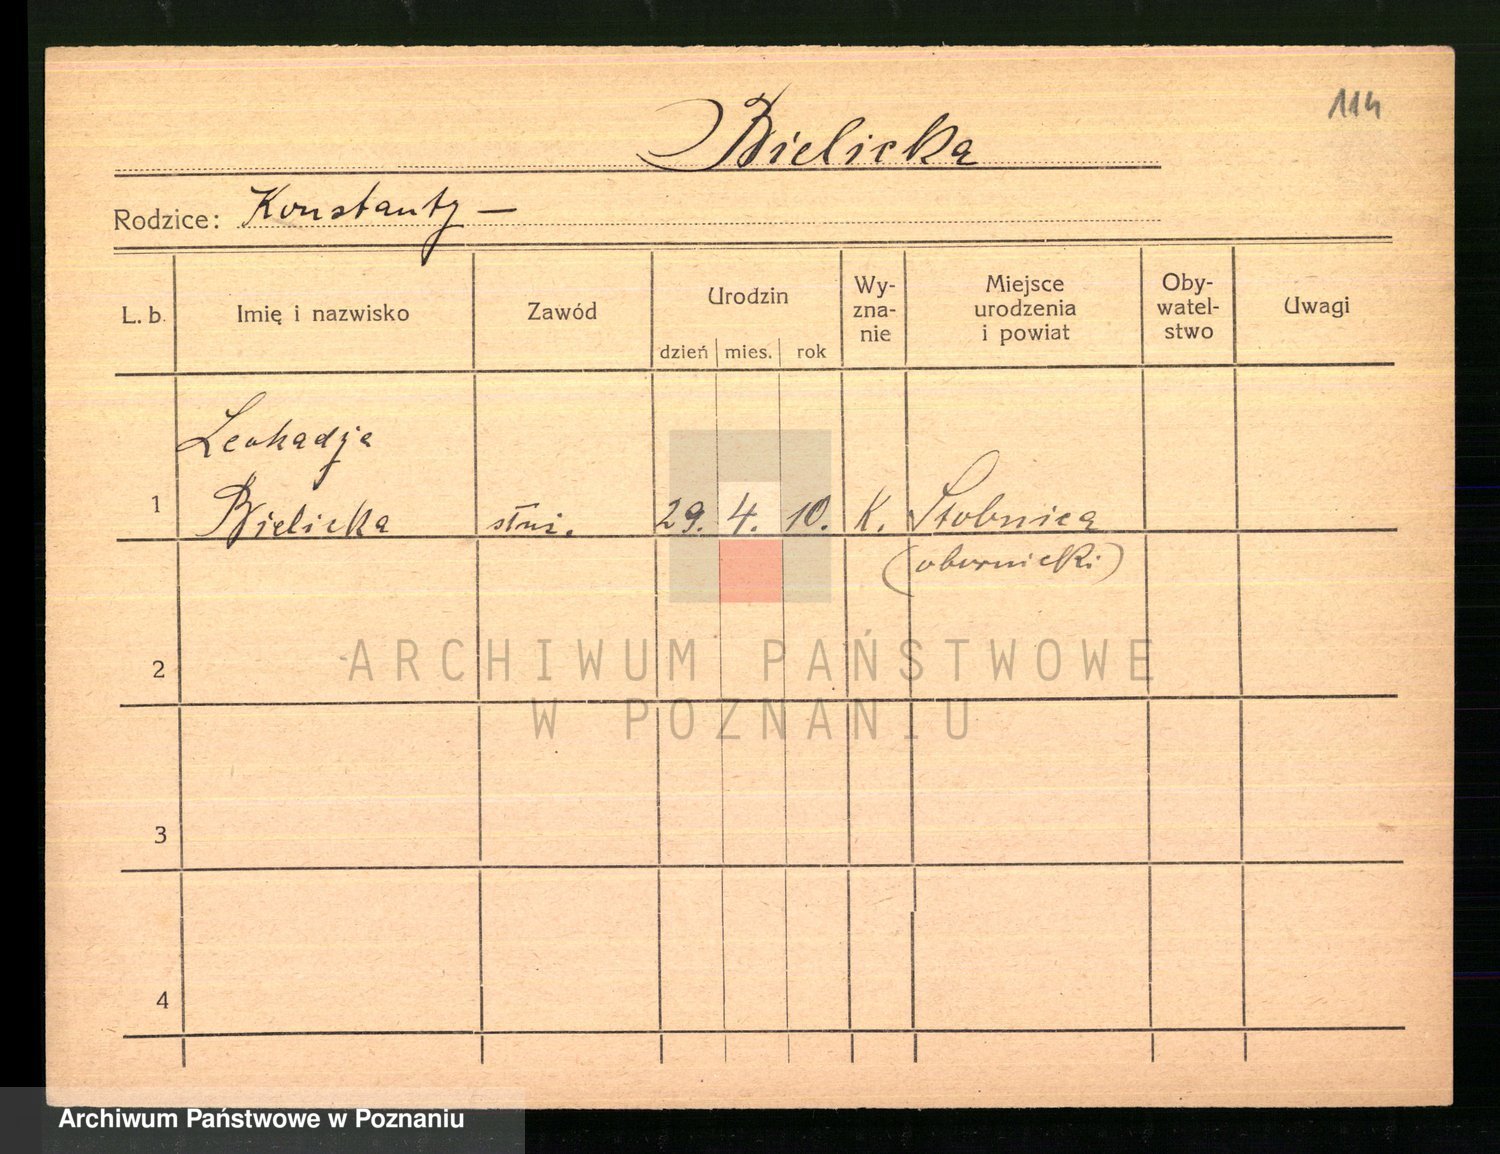 114
Bielicka
Rodzice: Konstanty —
L. b.
Imię i nazwisko
Zawód
Urodzin
dzień
mies.
rok
Wy-
zna-
nie
Miejsce
urodzenia
i powiat
Oby-
watel-
stwo
Uwagi
Leokadja
1 Bielicka służ. 29. 4. 10. K. Stobnica
(obornicki)
2
ARCHIWUM PAŃSTWOWE
W POZNANIU
3
4
Archiwum Państwowe w Poznaniu